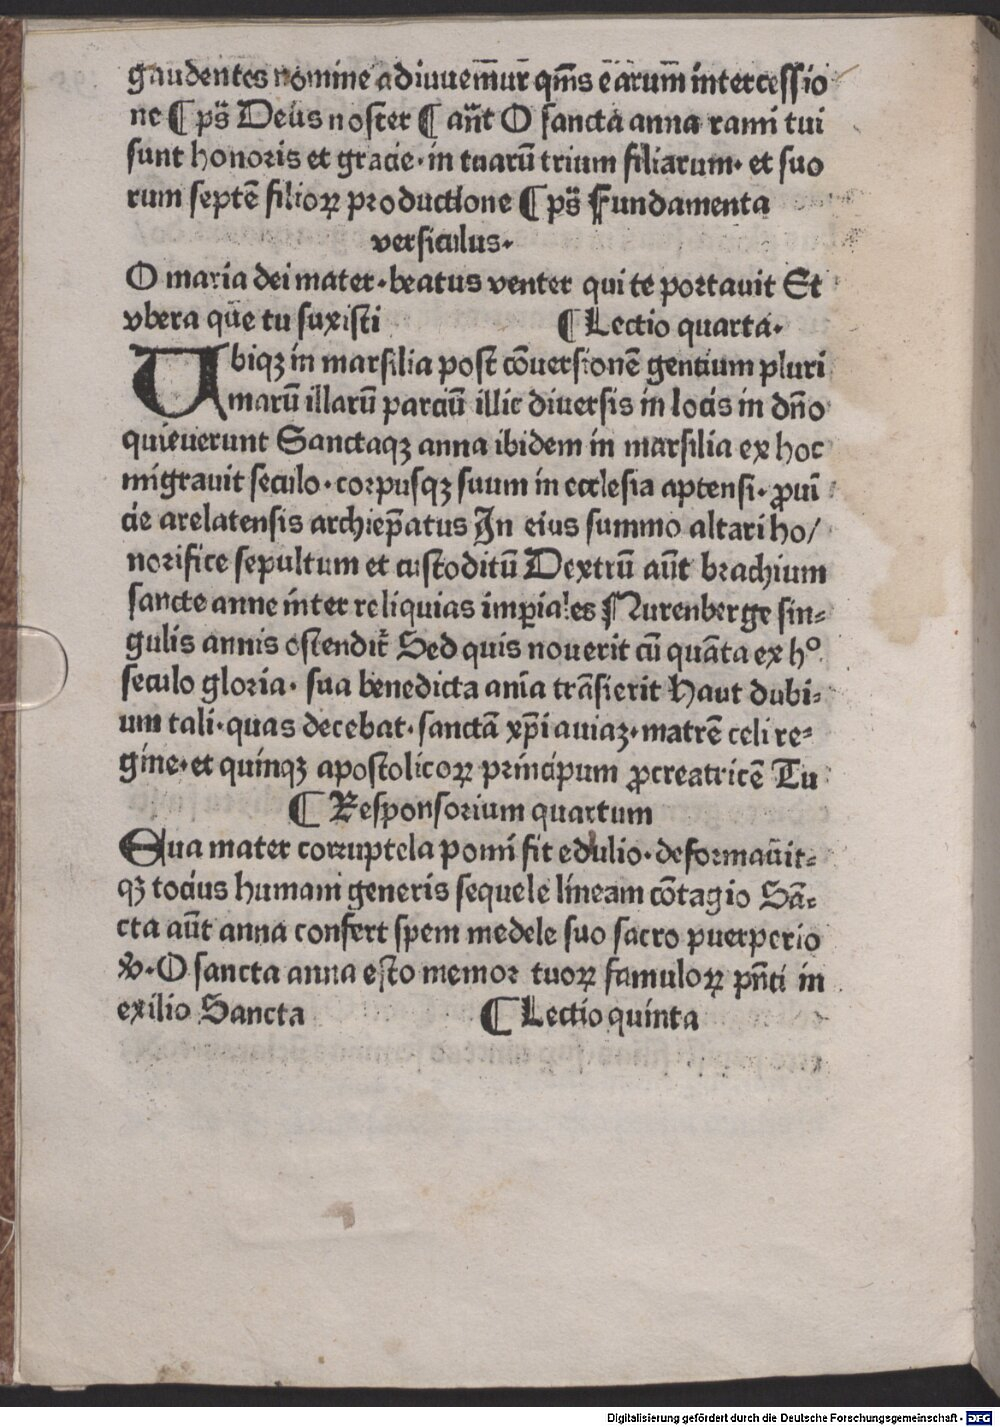 gaudentes nomine adiuuem̄ur̄ qm̄s ēarum̄ intercessio
ne ¶ ps̄ Deus noster ¶ an̄t O sancta anna rami tui
sunt honoris et gracie· in tuarū trium filiarum· et suo
rum septē filioꝝ productione ¶ ps̄ Fundamenta
versiculus·
O maria dei mater· beatus venter qui te portauit Et
vbera que tu suxisti ¶ Lectio quarta·
Ubiqꝫ in marsilia post cōuersionē gentium pluri
marū illarū parciū illic diuersis in locis in dn̄o
quieuerunt Sanctaqꝫ anna ibidem in marsilia ex hoc
migrauit seculo· corpusqꝫ suum in ecclesia aptensi· ꝓui
cie arelatensis archiep̄atus In eius summo altari ho/
norifice sepultum et custoditū Dextrū aūt brachium
sancte anne inter reliquias imꝑiales Nurenberge sin⸗
gulis annis ostendit̄ Sed quis nouerit cū quāta ex hᵒ
seculo gloria· sua benedicta anīa trāsierit Haut dubi⸗
um tali· quas decebat· sanctā xp̄i auiaꝫ· matrē celi re⸗
gine· et quinqꝫ apostolicoꝝ principum ꝓcreatricē Tu
¶ Responsorium quartum
Sua mater corruptela pomi fit edulio· deformauit⸗
qꝫ tocius humani generis sequele lineam cōtagio Sā⸗
cta aūt anna confert spem medele suo sacro puerperio
℣· O sancta anna esto memor tuoꝝ famuloꝝ pn̄ti in
exilio Sancta ¶ Lectio quinta
Digitalisierung gefördert durch die Deutsche Forschungsgemeinschaft - DFG